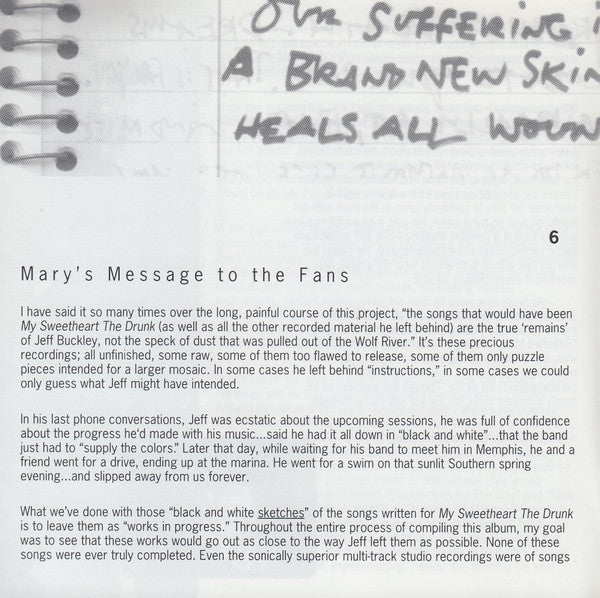 OUR SUFFERING
A BRAND NEW SKIN
HEALS ALL WOUN
6
Mary's Message to the Fans
I have said it so many times over the long, painful course of this project, “the songs that would have been
My Sweetheart The Drunk (as well as all the other recorded material he left behind) are the true ‘remains’
of Jeff Buckley, not the speck of dust that was pulled out of the Wolf River.” It's these precious
recordings; all unfinished, some raw, some of them too flawed to release, some of them only puzzle
pieces intended for a larger mosaic. In some cases he left behind “instructions,” in some cases we could
only guess what Jeff might have intended.
In his last phone conversations, Jeff was ecstatic about the upcoming sessions, he was full of confidence
about the progress he'd made with his music...said he had it all down in “black and white”...that the band
just had to “supply the colors.” Later that day, while waiting for his band to meet him in Memphis, he and a
friend went for a drive, ending up at the marina. He went for a swim on that sunlit Southern spring
evening...and slipped away from us forever.
What we've done with those “black and white sketches” of the songs written for My Sweetheart The Drunk
is to leave them as “works in progress.” Throughout the entire process of compiling this album, my goal
was to see that these works would go out as close to the way Jeff left them as possible. None of these
songs were ever truly completed. Even the sonically superior multi-track studio recordings were of songs